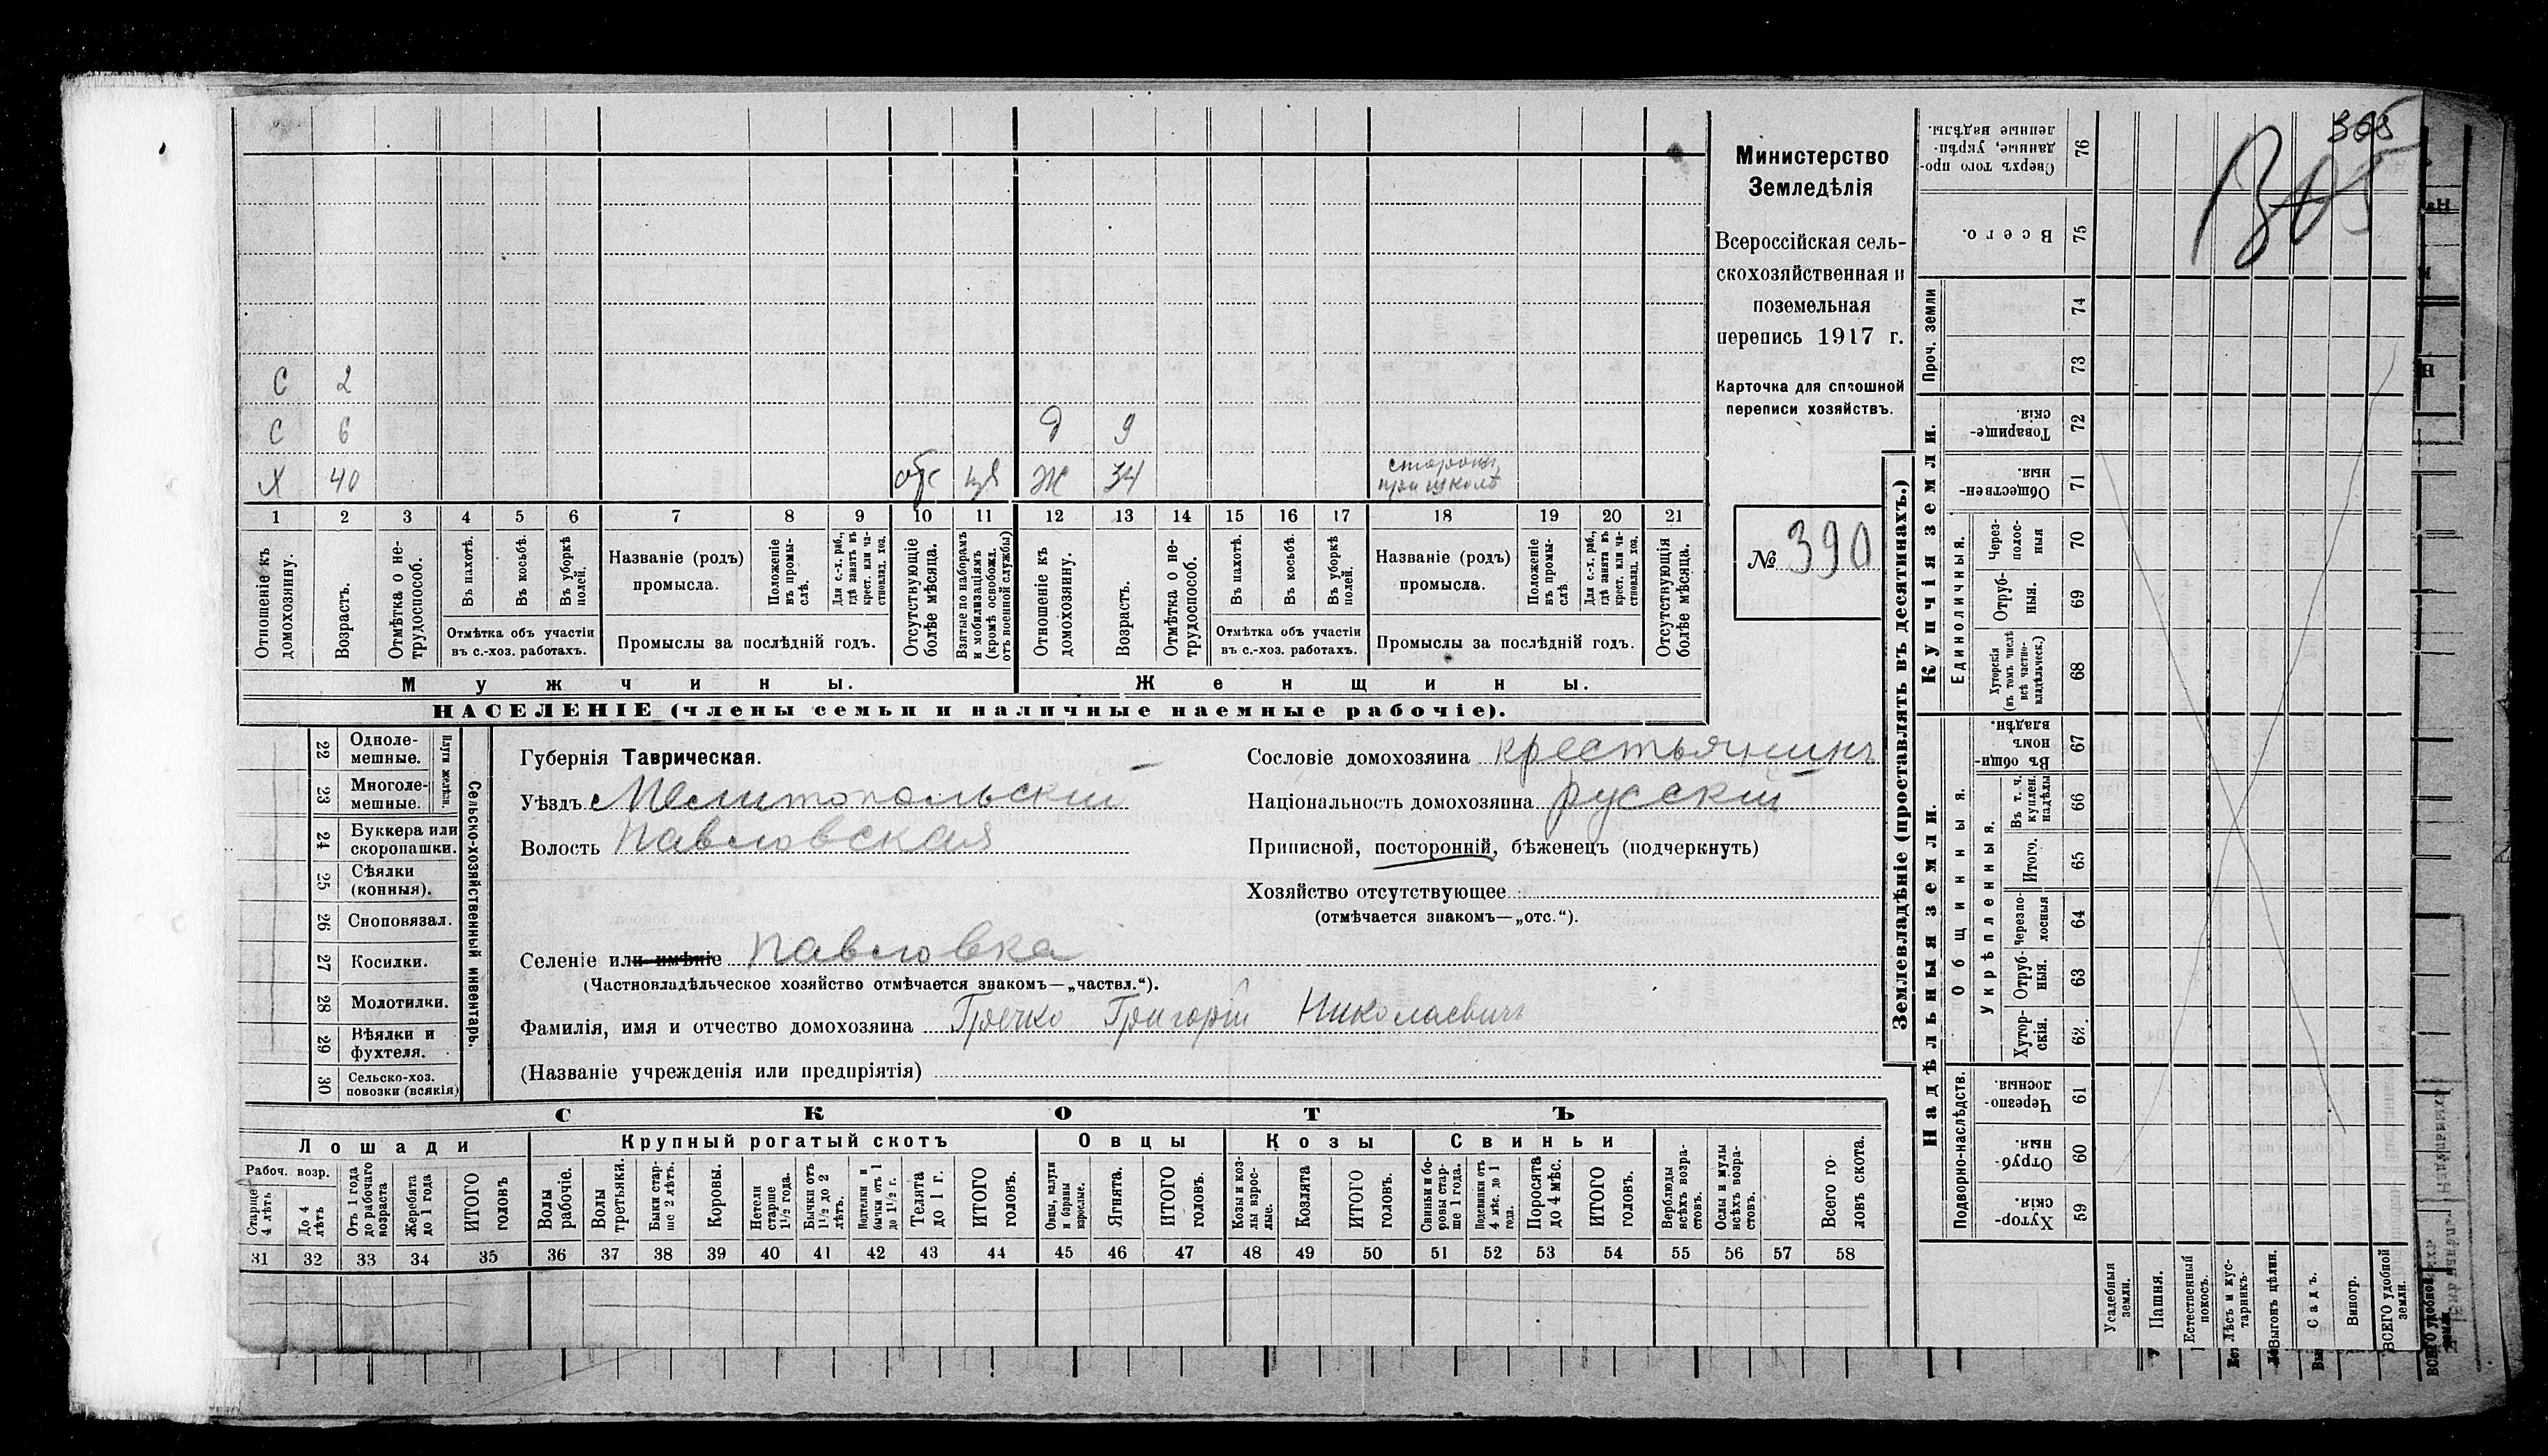 365
365
Министерство
Земледѣлія
Всероссійская сель-
скохозяйственная и
поземельная
перепись 1917 г.
Карточка для сплошной
переписи хозяйствъ.
№ 390
С 2
С 6 д 9
Х 40 отс Ж 34 сторож. при школѣ
1 2 3 4 5 6 7 8 9 10 11 12 13 14 15 16 17 18 19 20 21
Отношеніе къ домохозяину.
Возрастъ.
Отмѣтка о не-трудоспособ.
Въ пахотѣ.
Въ косьбѣ.
Въ уборкѣ полей.
Отмѣтка объ участіи въ с.-хоз. работахъ.
Названіе (родъ) промысла.
Положеніе въ промы-слѣ.
Для с.-х. раб., гдѣ занятъ въ крест. или ча-стновлад. хоз.
Промыслы за послѣдній годъ.
Отсутствующіе болѣе мѣсяца.
Взятые по наборамъ и мобилизаціямъ (кромѣ освобожд. отъ военной службы)
Отношеніе къ домохозяину.
Возрастъ.
Отмѣтка о не-трудоспособ.
Въ пахотѣ.
Въ косьбѣ.
Въ уборкѣ полей.
Отмѣтка объ участіи въ с.-хоз. работахъ.
Названіе (родъ) промысла.
Положеніе въ промы-слѣ.
Для с.-х. раб., гдѣ занята въ крест. или ча-стновлад. хоз.
Промыслы за послѣдній годъ.
Отсутствующія болѣе мѣсяца.
Мужчины. Женщины.
НАСЕЛЕНІЕ (члены семьи и наличные наемные рабочіе).
22 Однолемешные.
23 Многолемешные.
Плуги желѣзн.
24 Буккера или скоропашки.
25 Сѣялки (конныя).
26 Сноповязал.
27 Косилки.
28 Молотилки.
29 Вѣялки и фухтеля.
30 Сельско-хоз. повозки (всякія)
Сельско-хозяйственный инвентарь.
Губернія Таврическая.
Уѣздъ Мелитопольскій
Волость Павловская
Сословіе домохозяина крестьянинъ
Національность домохозяина русскій
Приписной, посторонній, бѣженецъ (подчеркнуть)
Хозяйство отсутствующее
(отмѣчается знакомъ—„отс.“).
Селеніе или имѣніе Павловка
(Частновладѣльческое хозяйство отмѣчается знакомъ—„частвл.“).
Фамилія, имя и отчество домохозяина Гречко Григорій Николаевичъ
(Названіе учрежденія или предпріятія)
СКОТЪ
Лошади Крупный рогатый скотъ Овцы Козы Свиньи
Рабоч. возр.
Старше 4 лѣтъ
До 4 лѣтъ
Отъ 1 года до рабочаго возраста
Жеребята до 1 года
ИТОГО головъ
Волы рабочіе.
Волы третьяки.
Быки стар-ше 2 лѣтъ.
Коровы.
Нетели старше 1½ года.
Бычки отъ 1½ до 2 лѣтъ.
Подтелки и бычки отъ 1 до 1½ г.
Телята до 1 г.
ИТОГО головъ.
Овцы, валухи и бараны взрослые.
Ягнята.
ИТОГО головъ.
Козы и коз-лы взрос-лые.
Козлята
ИТОГО головъ.
Свиньи и бо-ровы стар-ше 1 года.
Подсвинки отъ 4 мѣс. до 1 года.
Поросята до 4 мѣс.
ИТОГО головъ.
Верблюды всѣхъ возра-стовъ.
Ослы и мулы всѣхъ возра-стовъ.
Всего го-ловъ скота.
31 32 33 34 35 36 37 38 39 40 41 42 43 44 45 46 47 48 49 50 51 52 53 54 55 56 57 58
Землевладѣніе (проставлять въ десятинахъ.)
Надѣльныя земли.
Купчія земли.
Проч. земли
Подворно-наслѣдств.
Общинныя.
Укрѣпленныя.
Единоличныя.
Сверхъ того про-данные, укрѣп-ленные надѣлы. 76
Всего. 75
74
73
Товарище-скія. 72
Обществен-ныя. 71
Через-полос-ныя 70
Отруб-ныя. 69
Хуторскія (въ томъ числѣ всѣ частно-владѣльческ.) 68
Въ общи-номъ владѣн. 67
Въ т. ч. куплен. надѣлы 66
Итого. 65
Черезпо-лосныя 64
Отруб-ныя. 63
Хутор-скія. 62
Черезпо-лосныя. 61
Отруб-ныя. 60
Хутор-скія. 59
Усадебныя земли.
Пашня.
Естественный покосъ.
Лѣсъ и кус-тарникъ.
Выгонъ цѣлин.
Садъ.
Виногр.
ВСЕГО удобной земли.